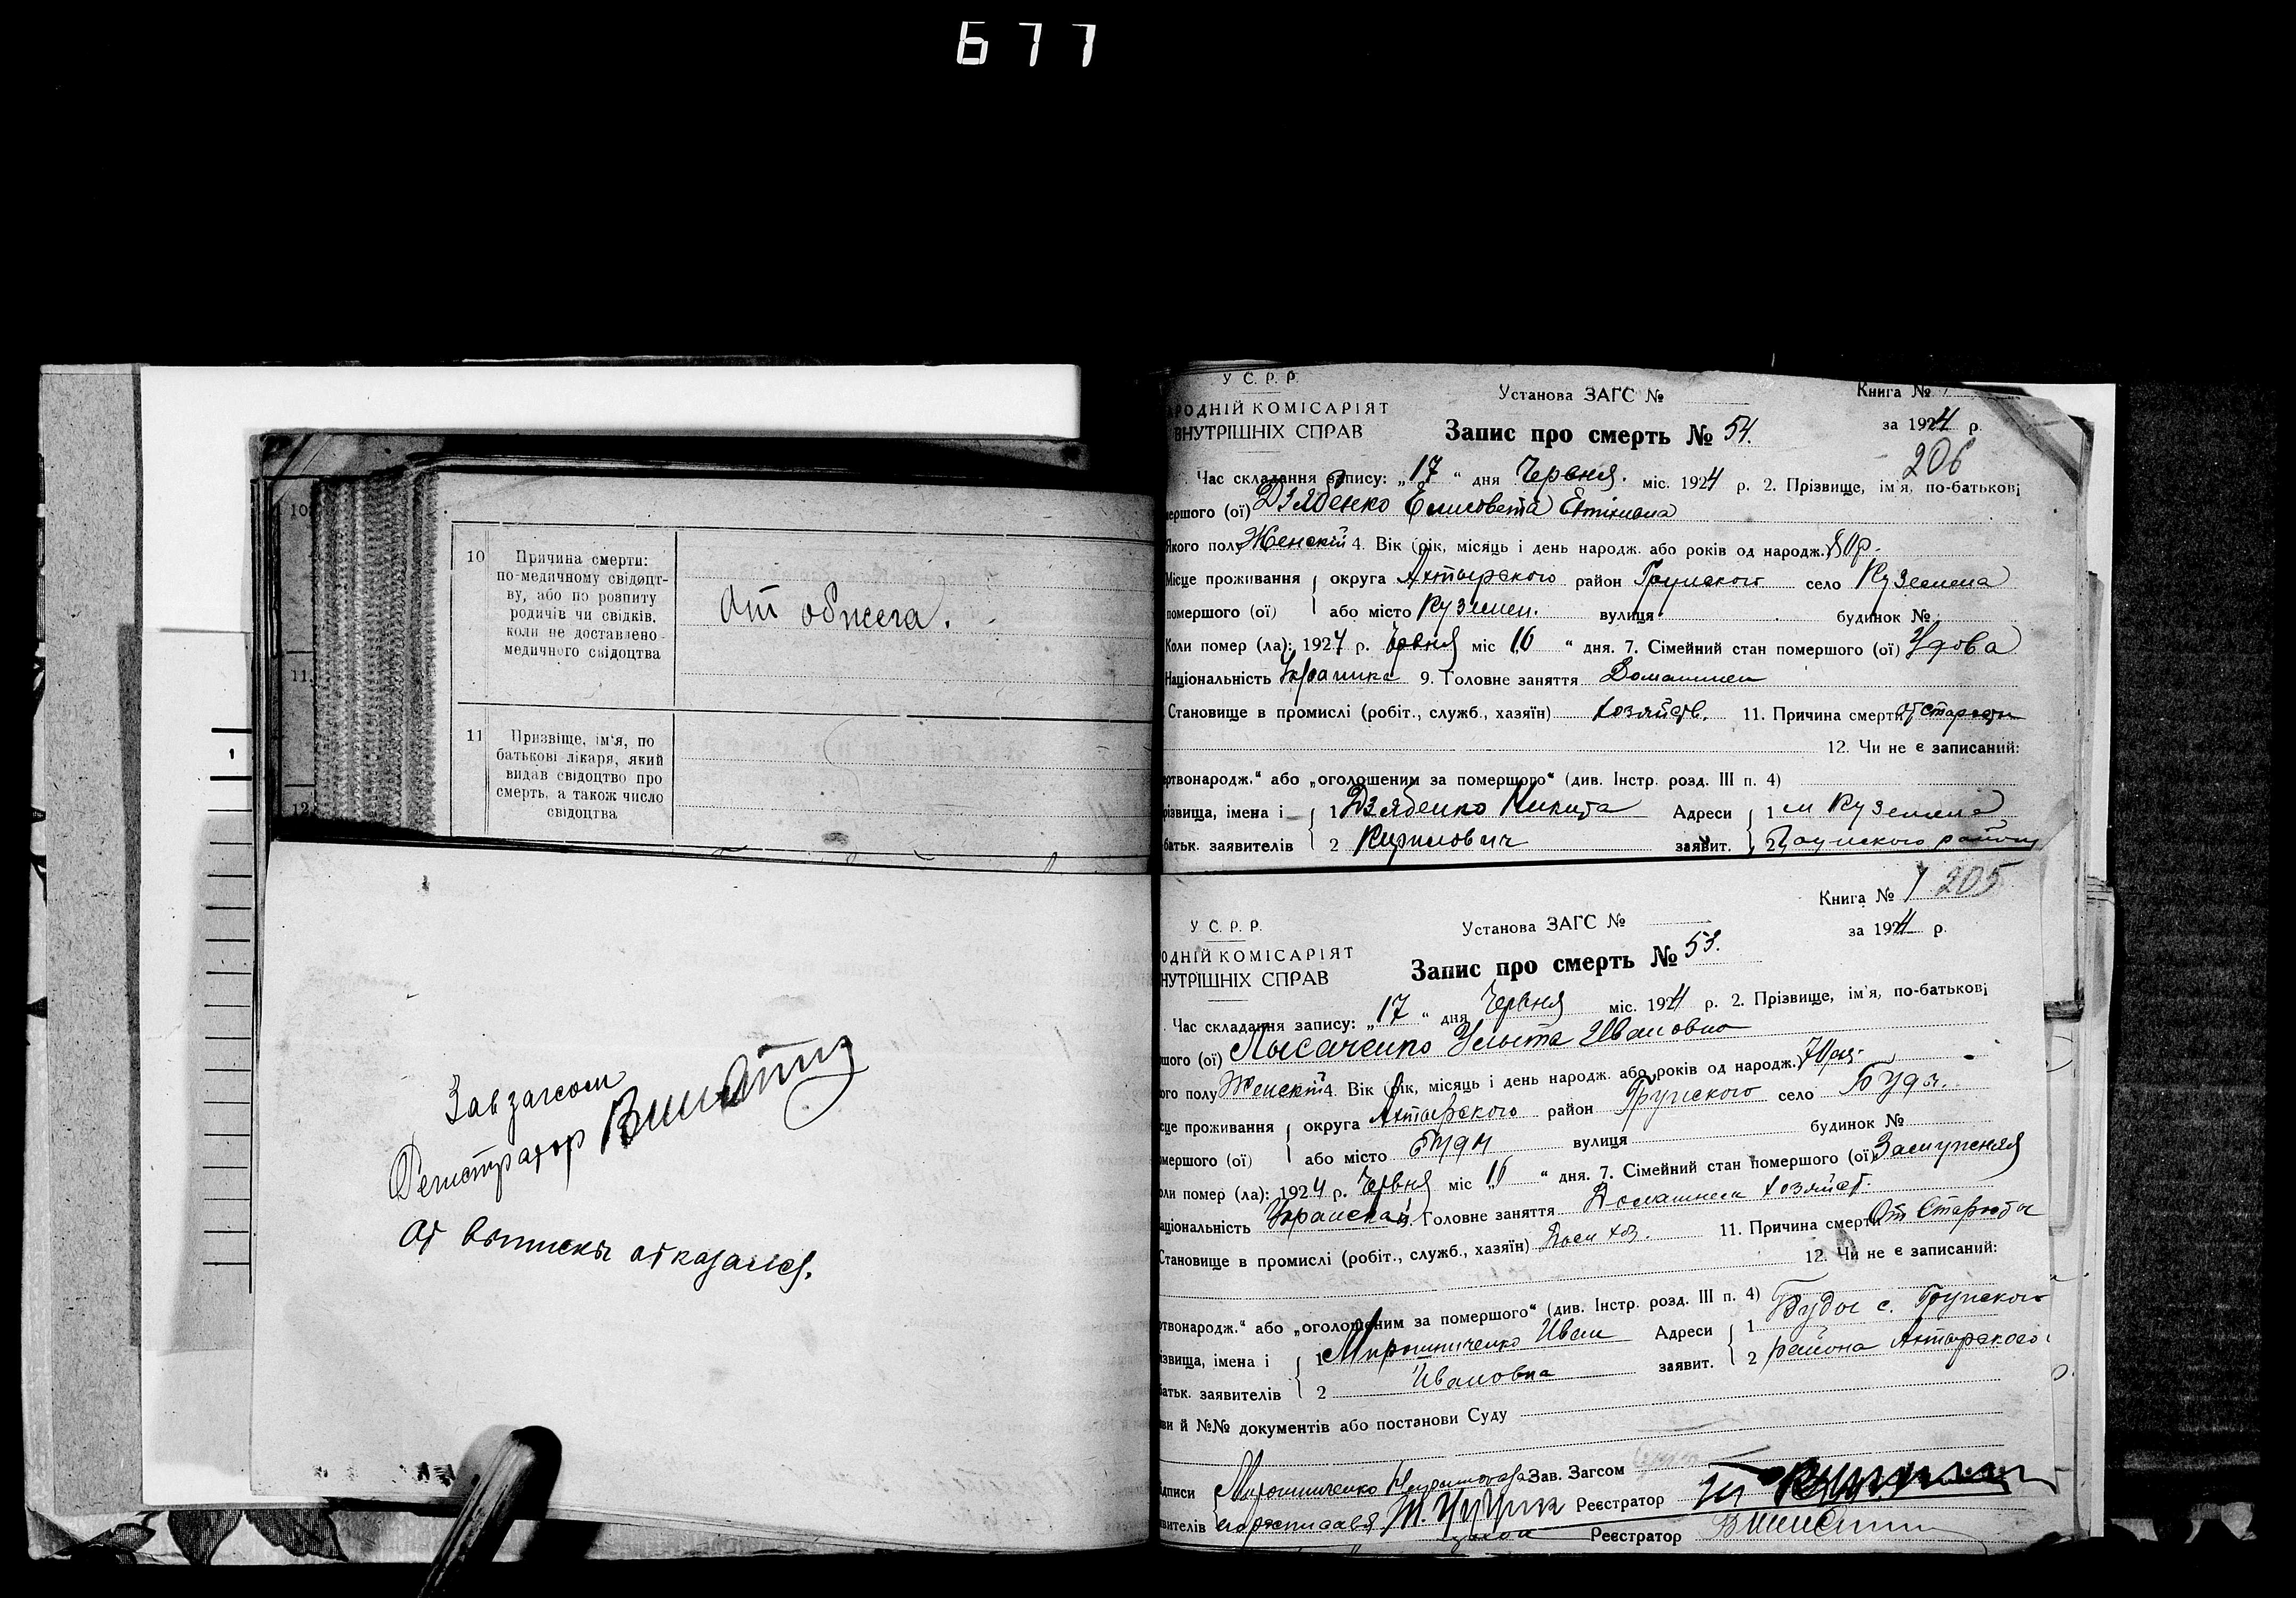 677
10
11.
12
10 Причина смерти:
по-медичному свідоцт-
ву, або по розпиту
родичів чи свідків,
коли не доставлено
медичного свідоцтва
От обжега.
11 Призвіще, ім'я, по
батькові лікаря, який
видав свідоцтво про
смерть, а також число
свідоцтва
Завзагсом
Регистратор
От выписки отказался.
У С. Р. Р.
РОДНІЙ КОМІСАРІЯТ
ВНУТРІШНІХ СПРАВ
Установа ЗАГС №
Запис про смерть № 54.
Книга №
за 1924 р.
206
Час складання запису: „17“ дня Червня. міс. 1924 р. 2. Прізвище, ім'я, по-батькові
мершого (ої) Дзябенко Елисовета
Якого полу Женский 4. Вік (рік, місяць і день народж. або років од народж. 80р.
Місце проживання округа Ахтырского район Грунского село Куземена
помершого (ої) або місто Куземен. вулиця будинок №
Коли помер (ла): 1924 р. Червня міс 16 “ дня. 7. Сімейний стан помершого (ої) Удова
Національність Украинка 9. Головне заняття Домашнем
Становище в промислі (робіт., служб., хазяїн) хозяйств. 11. Причина смерти от старости
12. Чи не є записаний:
ртвонародж.“ або „оголошеним за помершого“ (див. Інстр. розд. III п. 4)
різвища, імена і 1 Дзябенко Никита Адреси 1 м Куземена
батьк. заявителів 2 Кирилович заявит. 2 Грунского району
Книга № 1 205
У С. Р. Р.
ОДНІЙ КОМІСАРІЯТ
НУТРІШНІХ СПРАВ
Установа ЗАГС №
Запис про смерть № 53.
за 1924 р.
Час складання запису: „17“ дня Червня міс. 1924 р. 2. Прізвище, ім'я, по-батькові
шого (ої) Лысаченко Улыта Ивановна
ого полу Женский 4. Вік (рік, місяць і день народж. або років од народж.) 70
сце проживання округа Ахтырского район Грунского село Буды.
мершого (ої) або місто Буды вулиця будинок №
оли помер (ла): 1924 р. Червня міс 16 “ дня. 7. Сімейний стан помершого (ої) Замужняя
аціональність Украинская Головне заняття Домашнем хозяйст.
Становище в промислі (робіт., служб., хазяїн) Дом хоз. 11. Причина смерти От Старости
12. Чи не є записаний:
ртвонародж.“ або „оголошеним за помершого“ (див. Інстр. розд. III п. 4)
ізвища, імена і 1 Мирошниченко Иван Адреси 1 Буды с. Грунского
батьк. заявителів 2 Ивановна заявит. 2 района Ахтырского
ви й №№ документів або постанови Суду
ідписи Мирошниченко Зав. Загсом
явителів Реєстратор
Реєстратор